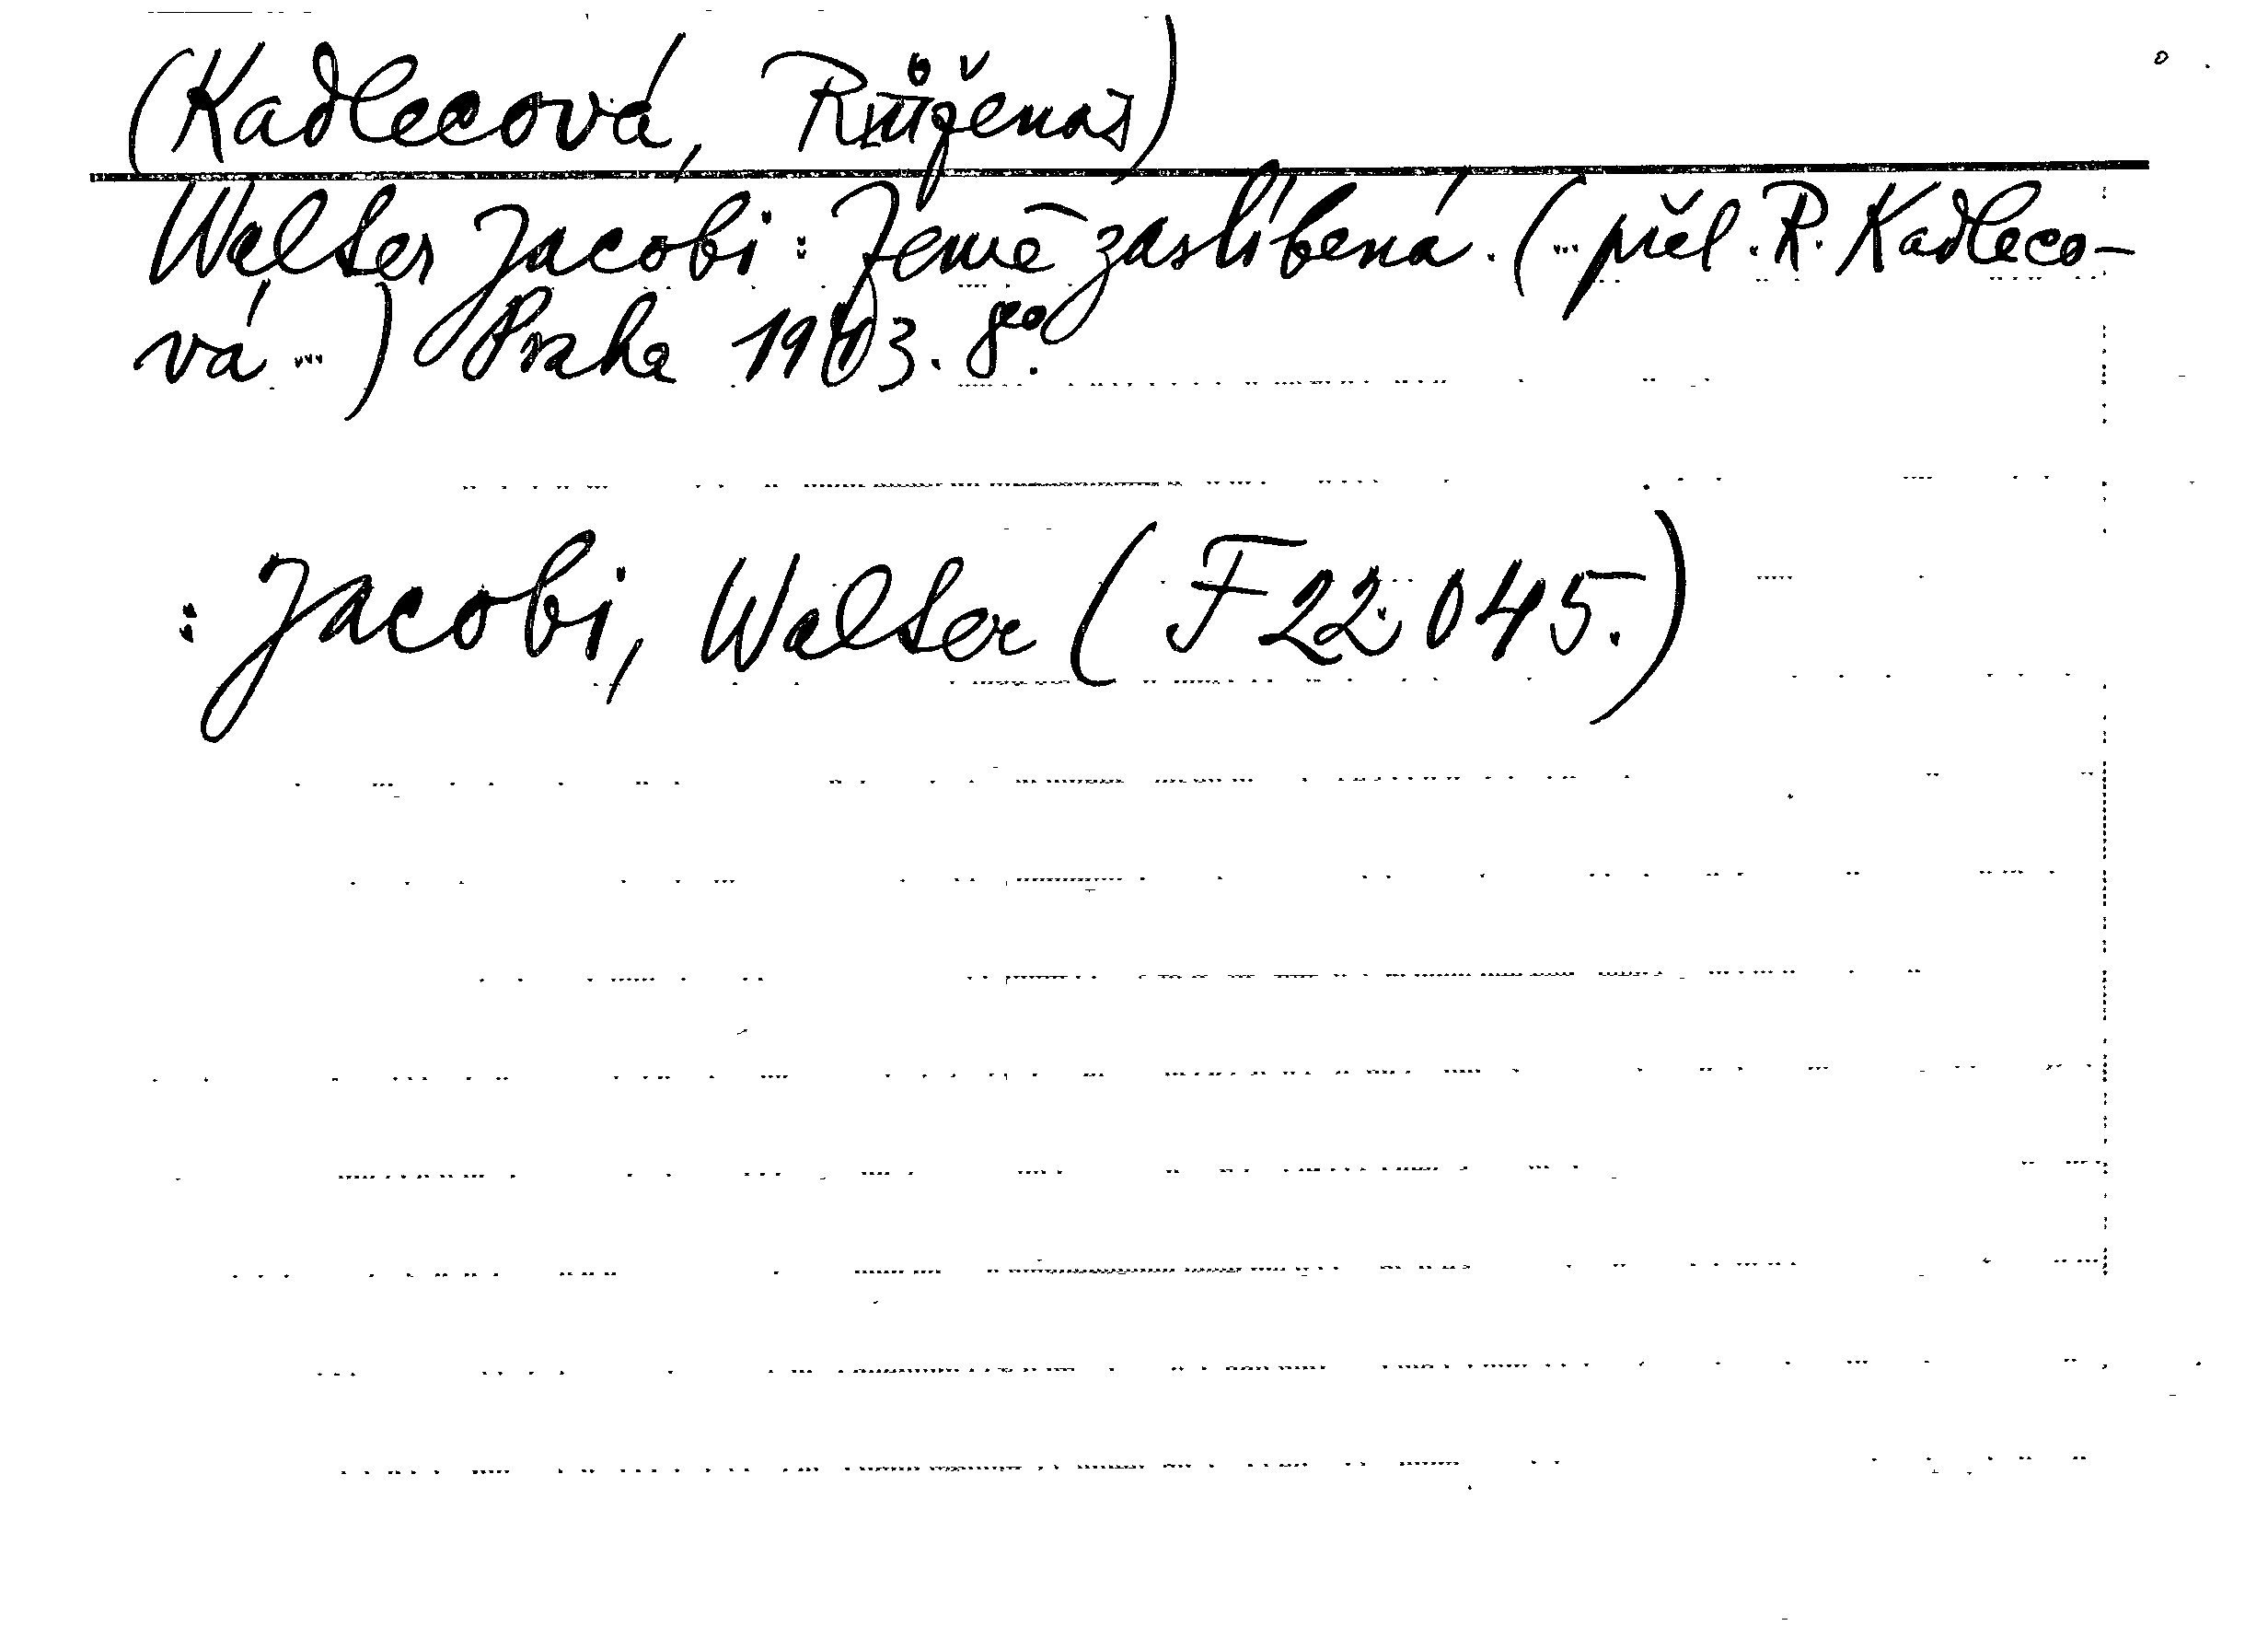 (Kadlecová, Růžena)
Walter Jacobi: Země zaslíbená. (... přel. R. Kadleco-
vá ...) Praha 1943. 8°.
: Jacobi, Walter (F 22.045.)